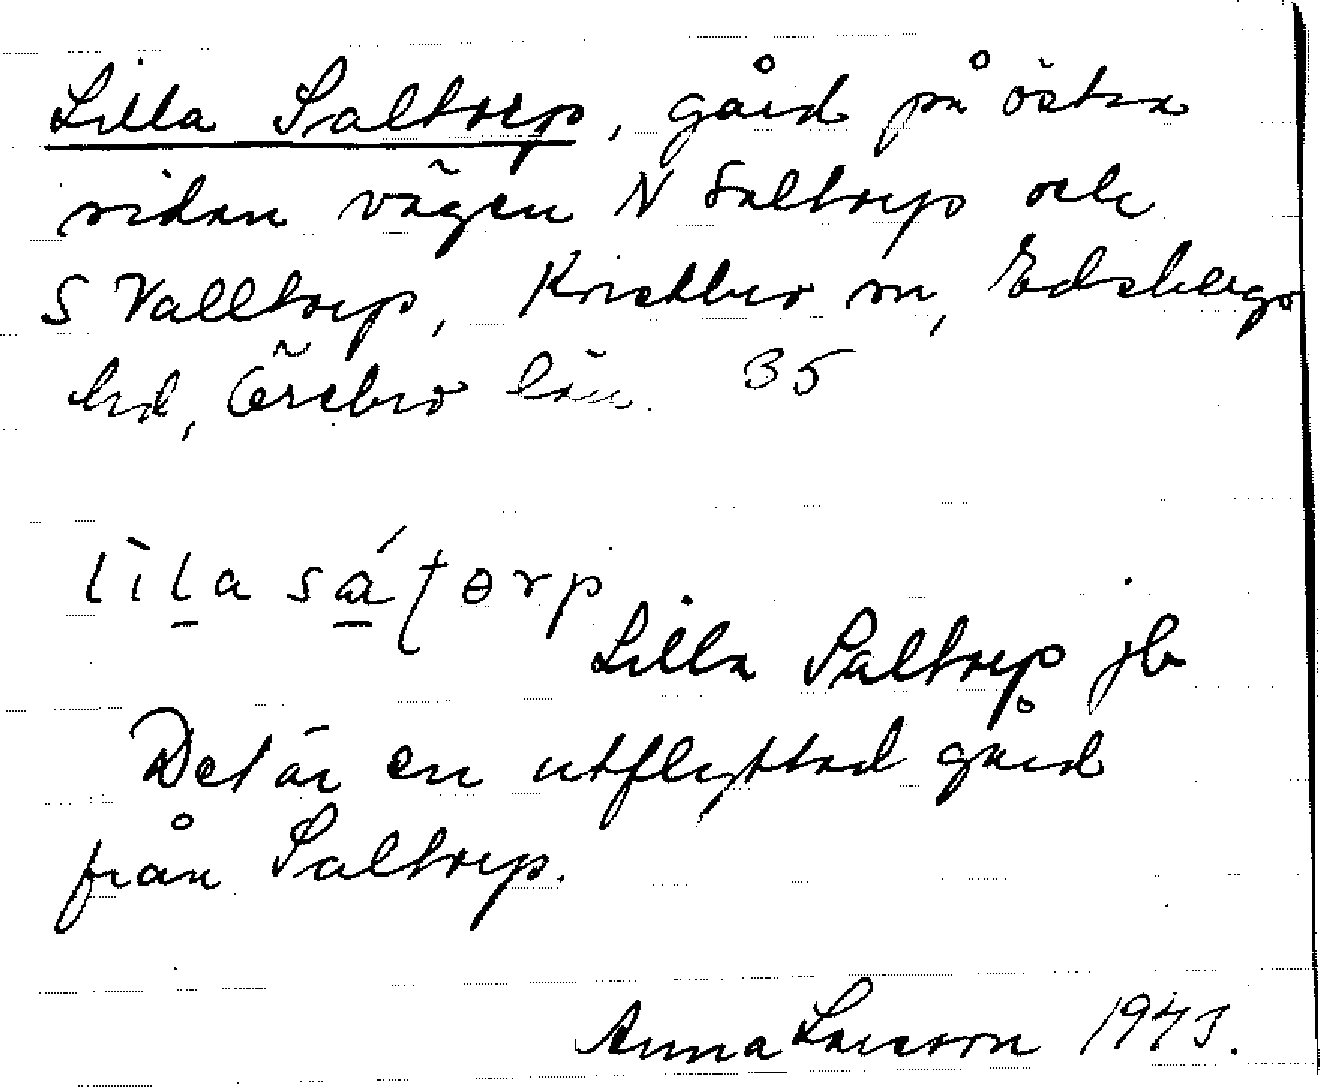 Lilla Saltorp, gård på östra
sidan vägen N Saltorp och
S Valltorp, Knistbro sn, Edsbergs
hd, Örebro län. 35
lìla sátorp
Lilla Saltorp jb
Det är en utflyttad gård
från Saltorp.
Anna Larsson 1943.